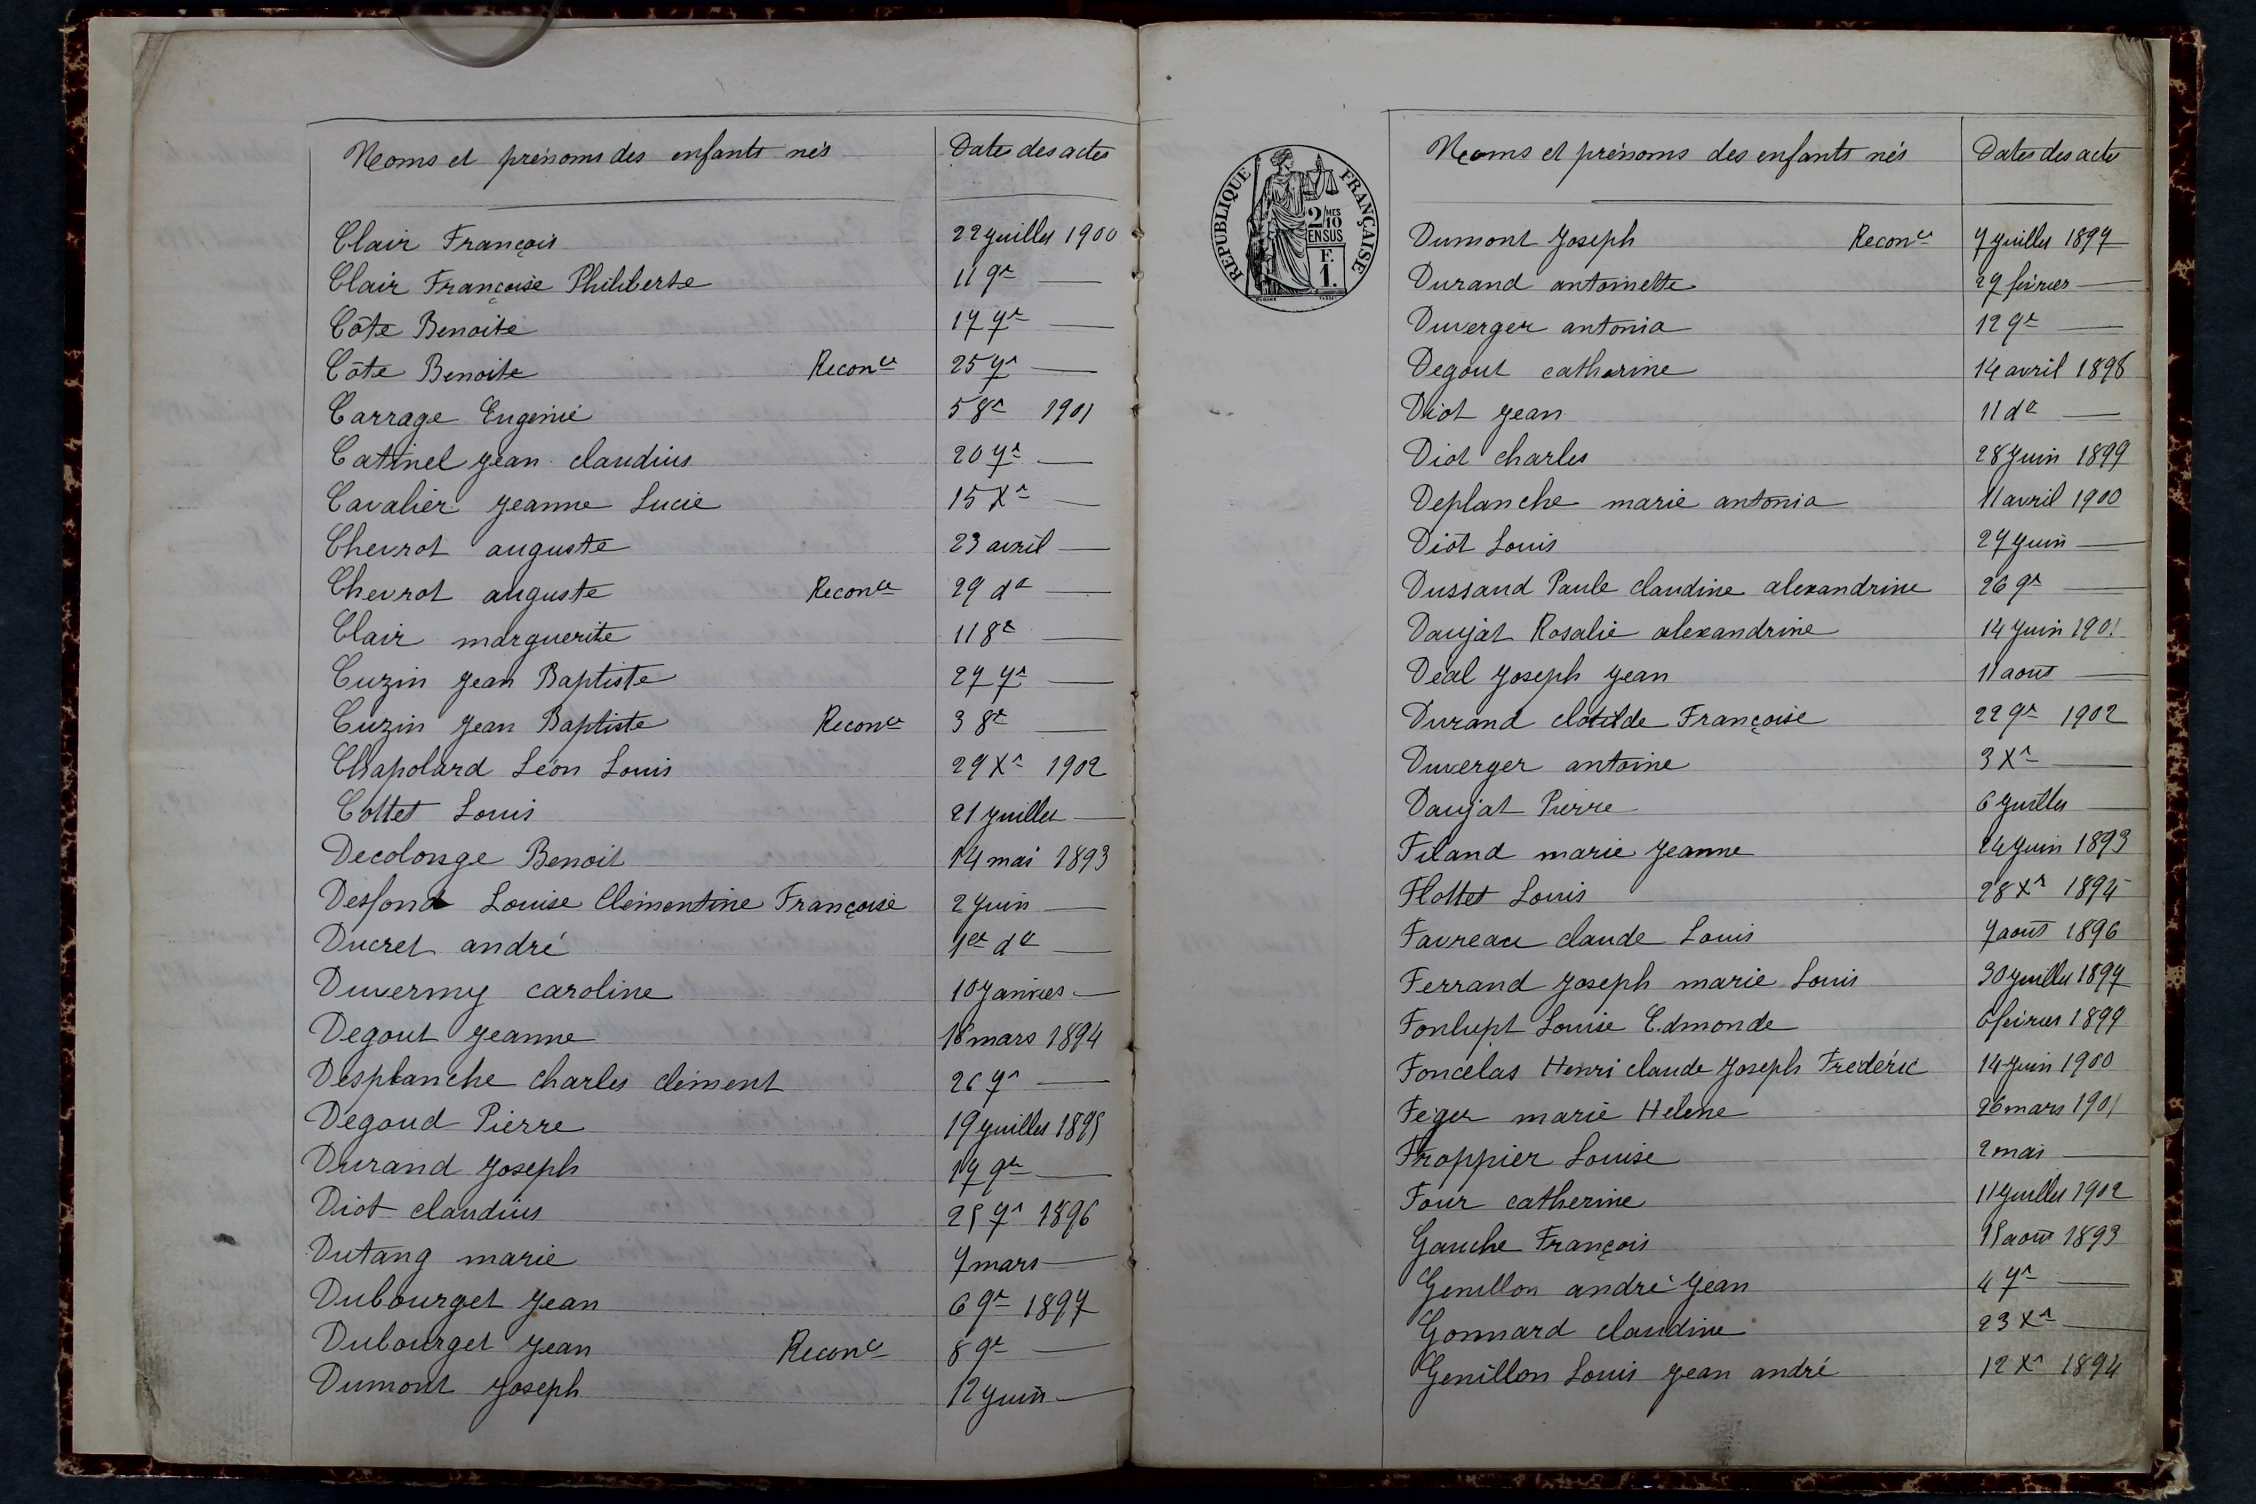 Noms et prénoms des enfants nés Dates des actes
Clair François 22 juillet 1900
Clair Françoise Philiberte 11 9re —
Côte Benoite 17 7re —
Côte Benoite Reconce 25 7re —
Carrage Eugénie 5 8re 1901
Catinel Jean claudius 20 7re —
Cavalier Jeanne Lucie 15 Xre —
Chevrot auguste 23 avril —
Chevrot auguste Reconce 29 do —
Clair marguerite 11 8re —
Cuzin Jean Baptiste 27 7re —
Cuzin Jean Baptiste Reconce 3 8re —
Chapolard Léon Louis 29 Xre 1902
Cottet Louis 21 juillet —
Decolonge Benoit 14 mai 1893
Desfond Louise Clémentine Françoise 2 juin —
Ducret andré 1er do —
Duvermy caroline 10 Janvier —
Degout Jeanne 16 mars 1894
Desplanche charles clément 26 7re —
Degoud Pierre 19 juillet 1895
Durand Joseph 17 9re —
Diot claudius 25 7re 1896
Dutang marie 7 mars —
Dubourget Jean 6 9re 1897
Dubourget Jean Reconce 8 9re —
Dumont Joseph 12 juin —
RÉPUBLIQUE FRANÇAISE
2/MES
10
EN SUS
F.
1.
Noms et prénoms des enfants nés Dates des actes
Dumont Joseph Reconce 7 juillet 1897
Durand antoinette 27 février —
Duverger antonia 12 9re —
Degout catherine 14 avril 1898
Diot Jean 11 do —
Diot charles 28 Juin 1899
Deplanche marie antonia 11 avril 1900
Diot Louis 27 juin —
Dussaud Paule claudine alexandrine 26 9re —
Daujat Rosalie alexandrine 14 Juin 1901
Déal Joseph Jean 11 aout —
Durand clotilde Françoise 22 9re 1902
Duverger antoine 3 Xre —
Daujat Pierre 6 juillet —
Filand marie Jeanne 24 Juin 1893
Flottet Louis 28 Xre 1895
Favreau claude Louis 7 aout 1896
Ferrand Joseph marie Louis 30 juillet 1897
Fonlupt Louise Edmonde 6 février 1899
Foncelas Henri claude Joseph Frédéric 14 Juin 1900
Feger marie Helene 26 mars 1901
Froppier Louise 2 mai —
Four catherine 11 juillet 1902
Gauche François 15 aout 1893
Genillon andré Jean 4 7re —
Gonnard claudine 23 Xre —
Genillon Louis Jean andré 12 Xre 1894